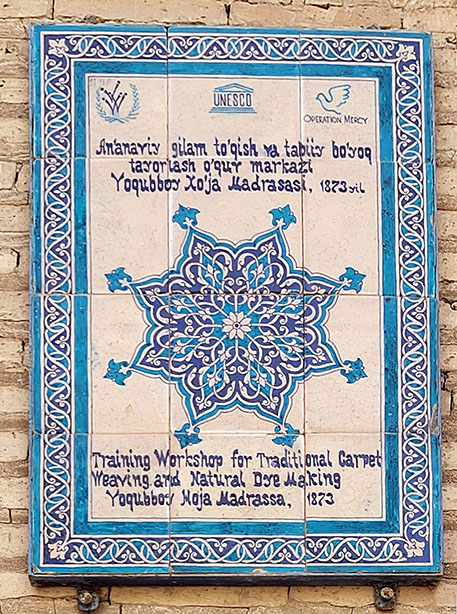 UNESCO
OPERATION MERCY
An'anaviy gilam to'qish va tabiiy bo'yoq
tayorlash o'quv markazi
Yoqubboy Xo'ja Madrasasi, 1873 yil
Training Workshop for Traditional Carpet
Weaving and Natural Dye Making
Yoqubboy Hoja Madrassa, 1873